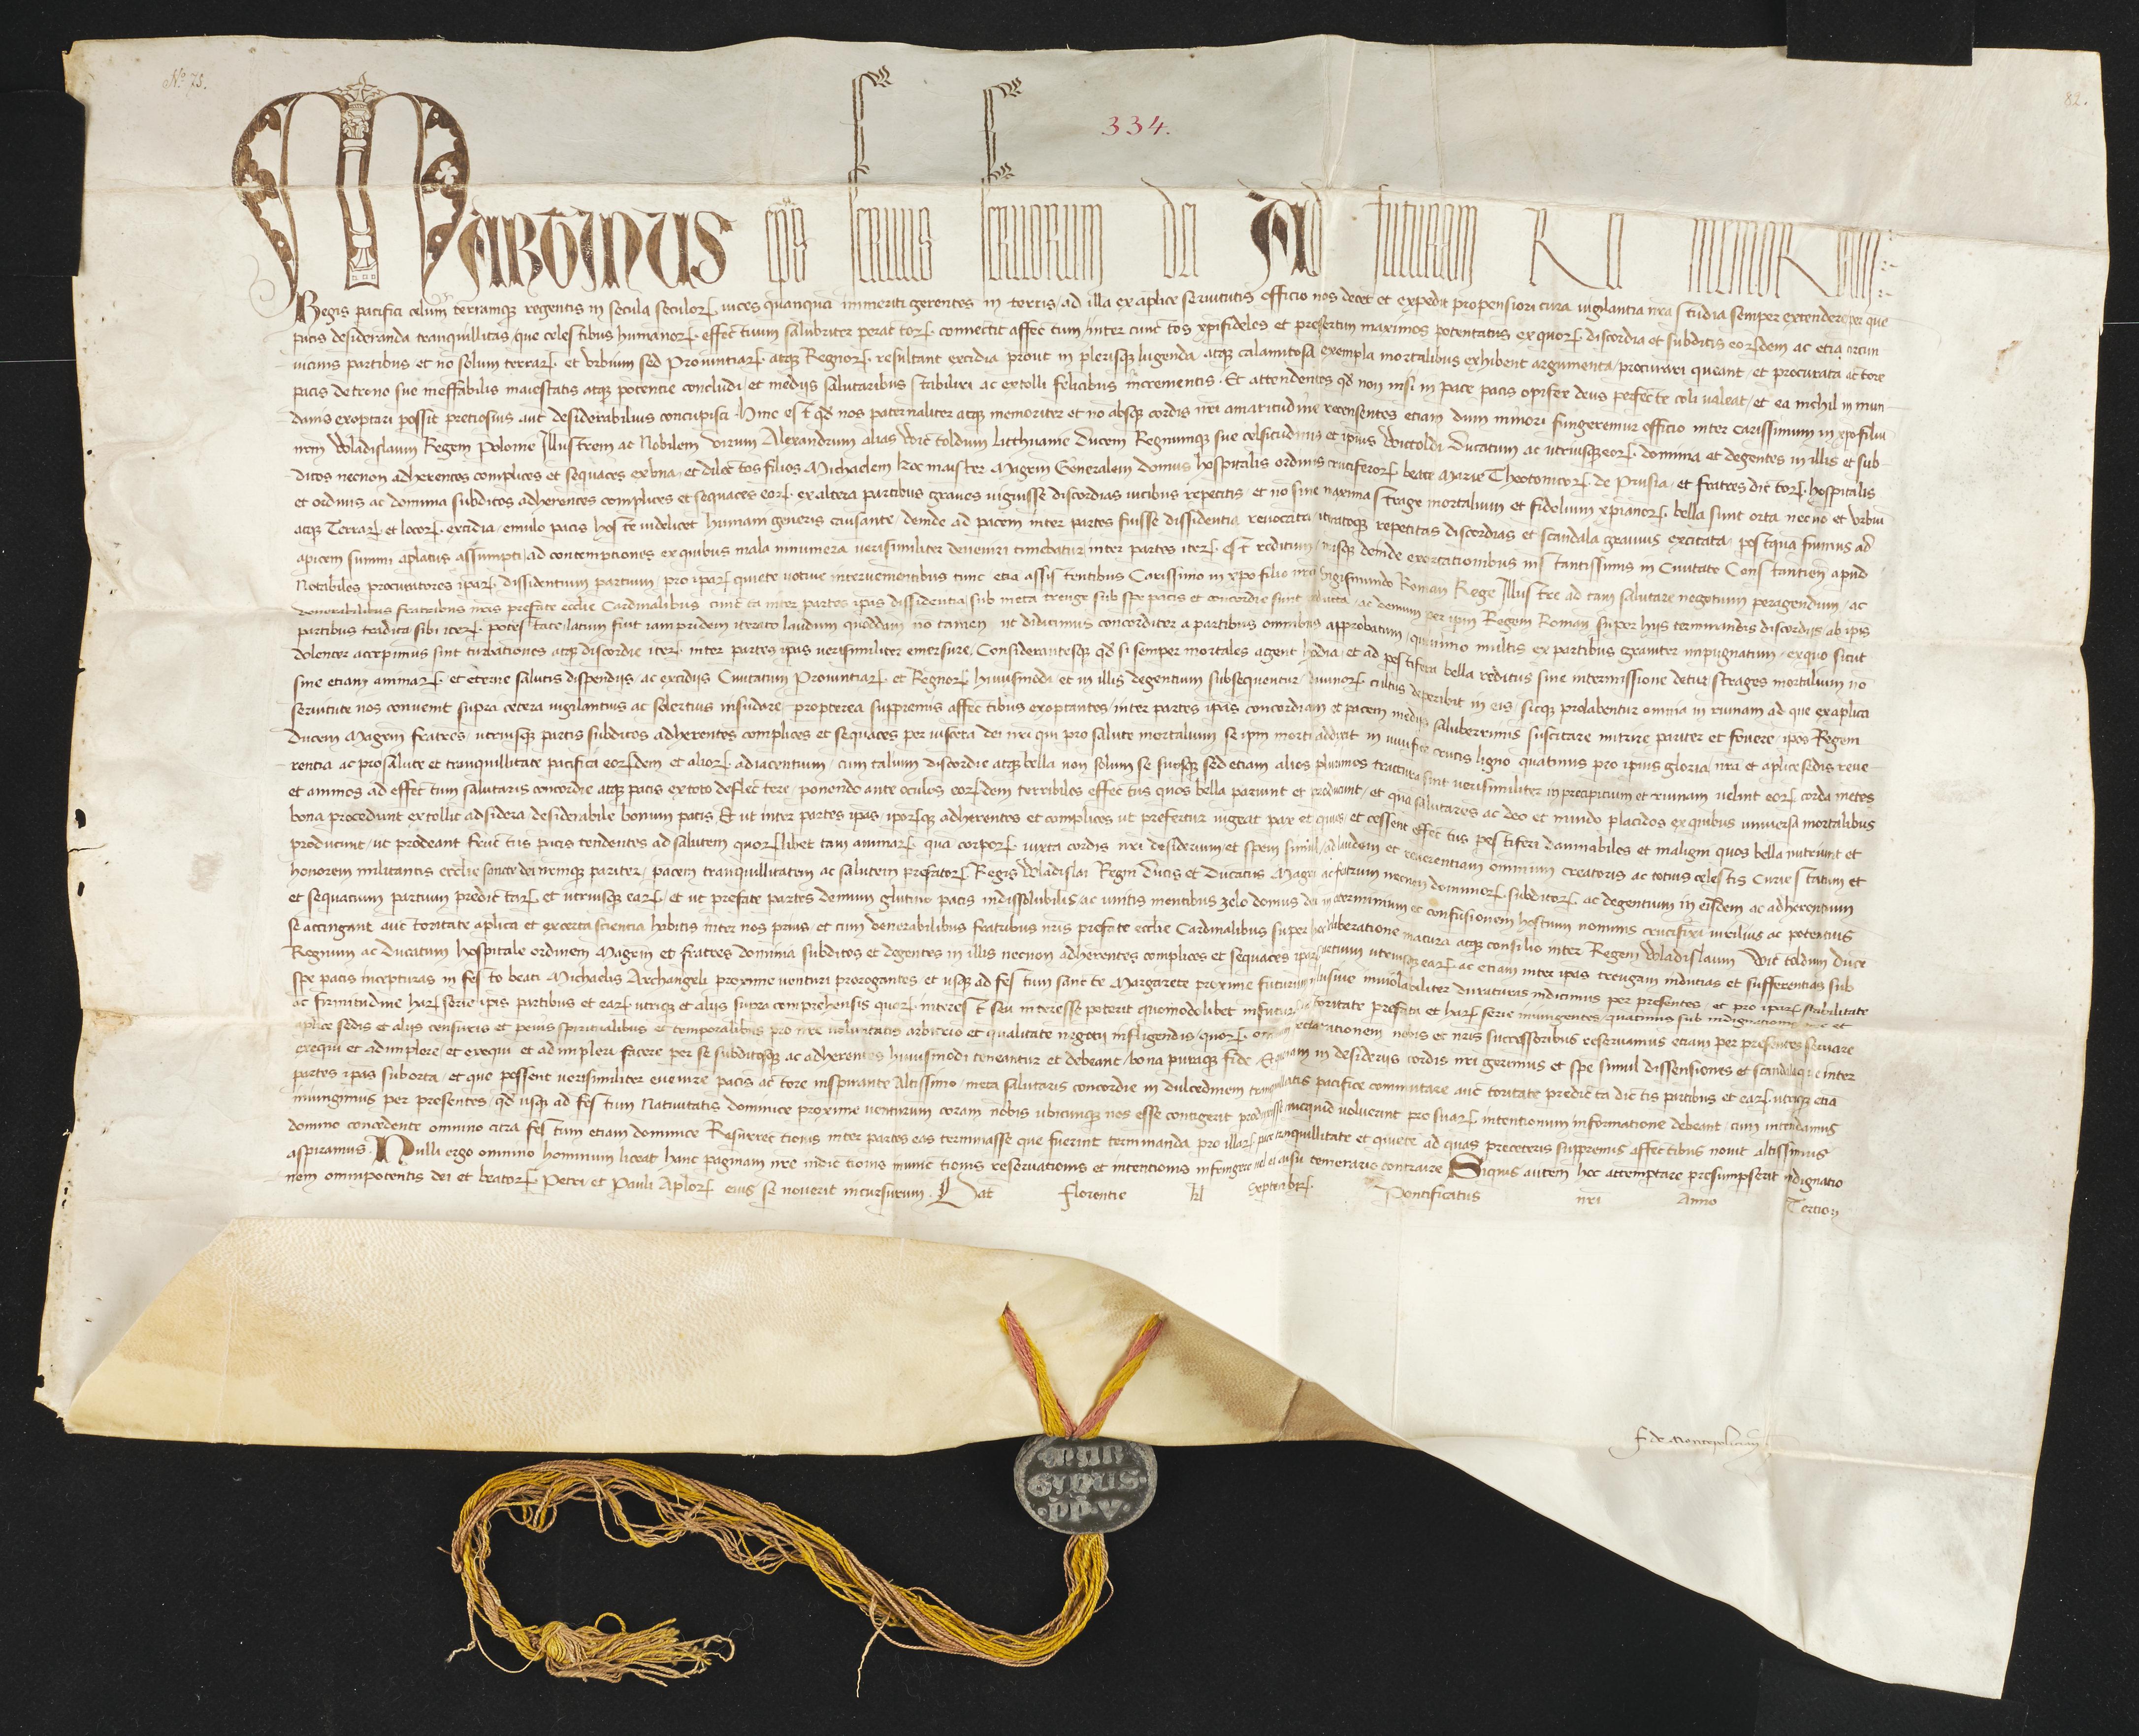 No 75.
82.
334.
MARTINUS eps seruus seruorum dei Ad futuram Rei memoriam
Regis pacifici celum terramq regentis in secula seculor vices quanquam immeriti gerentes in terris ad illa ex aplice seruitutis officio nos decet et expedit propensiori cura vigilantia nra studia semper extendere per que
pacis desideranda tranquillitas que celestibus humanor effectuum salubriter connectit affectum inter cunctos xpifideles et presertim maximos potentatus ex quor discordia et subditis eordem ac etia circum
uicinis partibus et no solum terrar et vrbium sed Prouintiar atq Regnor resultant excidia prout in plerisq lugenda atq calamitosa exempla mortalibus exhibent argumenta procurari queant et procurata actore
pacis de trono sue ineffabilis maiestatis atq potentie concludi et medijs salutaribus stabiliri ac extolli felicibus incrementis Et attendentes qd non nisi in pace pacis opifex deus perfecte coli valeat et ea nichil in mun
danis exoptari possit pretiosius aut desiderabilius concupisci Hinc est qd nos paternaliter atq memoriter et no absq cordis nri amaritudine recensentes etiam dum minori fungeremur officio inter Carissimum in xpo filiu
nrm Wladislaum Regem Polonie Illustrem ac Nobilem virum Alexandrum alias Victoldum Litthuanie Ducem Regnumq sue celsitudinis et ipius Victoldi Ducatum ac utriusq eor dominia et degentes in illis et sub
ditos necnon adherentes complices et sequaces ex vna et dilectos filios Michaelem Hocmaister Magrm Generalem domus hospitalis ordinis cruciferor beate Marie Theotonicor de Prusia et fratres dictor hospitalis
et ordinis ac dominia subditos adherentes complices et sequaces eor ex altera partibus graues viguisse discordias vicibus repetitis et no sine maxima strage mortalium et fidelium xpianor bella sunt orta necno et vrbiu
atq Terrar et locor excidia emulo pacis hoste videlicet humani generis causante deinde ad pacem inter partes fuisse dissidentia reuocata iteratoq repetitas discordias et scandala grauius excitata postqua fuimus ad
apicem summi aplatus assumpti ad contemptiones ex quibus mala innumera verisimiliter deueniri timebatur inter partes iter est reditum nrisq deinde exortationibus instantissimis in Ciuitate Constantien apud
Notabiles procuratores ipar dissidentium partium pro ipar quiete votiue interuenientibus tunc etia assistentibus Carissimo in xpo filio nro Sigismundo Roman Rege Illustre ad tam salutare negotium peragendum ac
venerabilibus fratribus nris prefate ecclie Cardinalibus cuncta inter partes ipas dissidentia sub meta treuge sub spe pacis et concordie sunt reducta ac demum per ipm Regem Roman super hijs terminandis discordijs ab ipis
partibus tradita sibi iter potestate latum fuit iampridem iterato laudum quoddam no tamen ut didicimus concorditer a partibus omnibus approbatum quinimo multis ex partibus grauiter impugnatum ex quo sicut
dolenter accepimus sint turbationes atq discordie iter inter partes ipas verisimiliter emersure Considerantesq qd si semper mortales agent hodia et ad pestifera bella reditus sine intermissione detur strages mortalium no
sine etiam animar et eterne salutis dispendijs ac excidijs Ciuitatum Prouintiar et Regnor huiusmodi et in illis degentium subsequentur diuinor cultus deperibit in eis sicq prolabentur omnia in ruinam ad que ex aplica
seruitute nos conuenit supra cetera vigilantius ac solertius insudare propterea supremis affectibus exoptantes inter partes ipas concordiam et pacem medijs saluberrimis suscitare nutrire pariter et fouere ipos Regem
Ducem Magrm fratres utriusq partis subditos adherentes complices et sequaces per viscera dei nri qui pro salute mortalium se ipm morti addixit in viuifice crucis ligno quatinus pro ipius gloria nra et aplice sedis reue
rentia ac pro salute et tranquillitate pacifica eordem et alior adiacentium cum talium discordie atq bella non solum se suosq sed etiam alios plurimos tractura sint verisimiliter in precipitium et ruinam velint eor corda metes
et animos ad effectum salutaris concordie atq pacis ex toto deflectere ponendo ante oculos eordem terribiles effectus quos bella pariunt et producunt et qua salutares ac deo et mundo placidos ex quibus vniuersa mortalibus
bona procedunt extollit ad sidera desiderabile bonum pacis Et ut inter partes ipas iporq adherentes et complices ut prefertur vigeat pax et quies et cessent effectus pestiferi damnabiles et maligni quos bella nutriunt et
producunt ut prodeant fructus pacis tendentes ad salutem quorlibet tam animar qua corpor iuxta cordis nri desiderium et spem simul ad laudem et reuerentiam omnium creatoris ac totius celestis Curie statum et
honorem militantis ecclie sancte dei nrumq pariter pacem tranquillitatem ac salutem prefator Regis Wladislai Regni Ducis et Ducatus Magri ac fratrum necnon dominior subditor ac degentium in eisdem ac adherentium
et sequacium partium predictar et utriusq ear et ut prefate partes demum glutino pacis indissolubilis ac vnitis mentibus zelo domus dei in exterminium et confusionem hostium nominis crucifixi virilius ac potentius
se accingant auctoritate aplica et ex certa sciencia habitis inter nos prius et cum venerabilibus fratribus nris prefate ecclie Cardinalibus super hoc deliberatione matura atq consilio inter Regem Wladislaum Victoldum Duce
Regnum ac Ducatum hospitale ordinem Magrm et fratres dominia subditos et degentes in illis necnon adherentes complices et sequaces ipar partium utriusq ear ac etiam inter ipas treugam indutias et sufferentias sub
spe pacis incepturas in festo beati Michaelis Archangeli proxime venturi prorogantes et usq ad festum sancte Margarete proxime futurum inclusiue inuiolabiliter duraturas indicimus per presentes et pro ipar stabilitate
ac firmitudine har serie ipis partibus et ear utriq et alijs supra comprehensis quor interest seu interesse poterit quomodolibet in futurum auctoritate prefata et har serie iniungentes quatinus sub indignatione nre et
aplice sedis et alijs censuris et penis spiritualibus et temporalibus pro nre voluntatis arbitrio et qualitate negotij infligendis quor omnium declarationem nobis et nris successoribus reseruamus etiam per presentes seruare
exequi et adimplere et exequi et adimpleri facere per se subditosq ac adherentes huiusmodi teneantur et debeant bona puraq fide Et quoniam in desiderijs cordis nri gerimus et spe simul dissensiones et scandala que inter
partes ipas suborta et que possent verisimiliter euenire pacis actore inspirante Altissimo meta salutaris concordie in dulcedinem tranquillitatis pacifice commutare auctoritate predicta dictis partibus et ear utriq etia
iniungimus per presentes qd usq ad festum Natiuitatis dominice proxime venturum coram nobis ubicunq nos esse contigerit produxisse quicquid voluerint pro suar intentionum informatione debeant cum intendamus
domino concedente omnino citra festum etiam dominice Resurrectionis inter partes eas terminasse que fuerint terminanda pro illar pace tranquillitate et quiete ad quas preceteris supremis affectibus nouit altissimus
aspiramus Nulli ergo omnino hominum liceat hanc paginam nre indictionis iniunctionis reseruationis et intentionis infringere vel ei ausu temerario contraire Siquis autem hoc attemptare presumpserit indignatio
nem omnipotentis dei et beator Petri et Pauli Aplor eius se nouerit incursurum Dat Florentie kl Septembr Pontificatus nri Anno Tertio
F de Montepolitiano
MAR
TINUS
PP V